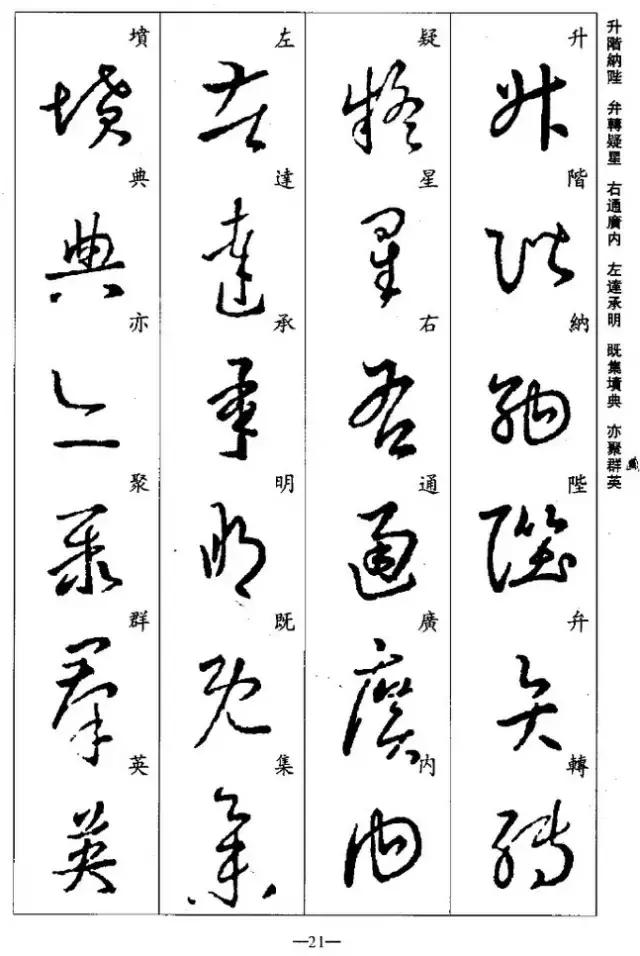 升階納陛 弁轉疑星 右通廣内 左達承明 既集墳典 亦聚群英
升階納陛弁轉
疑星右通廣内
左達承明既集
墳典亦聚群英
—21—